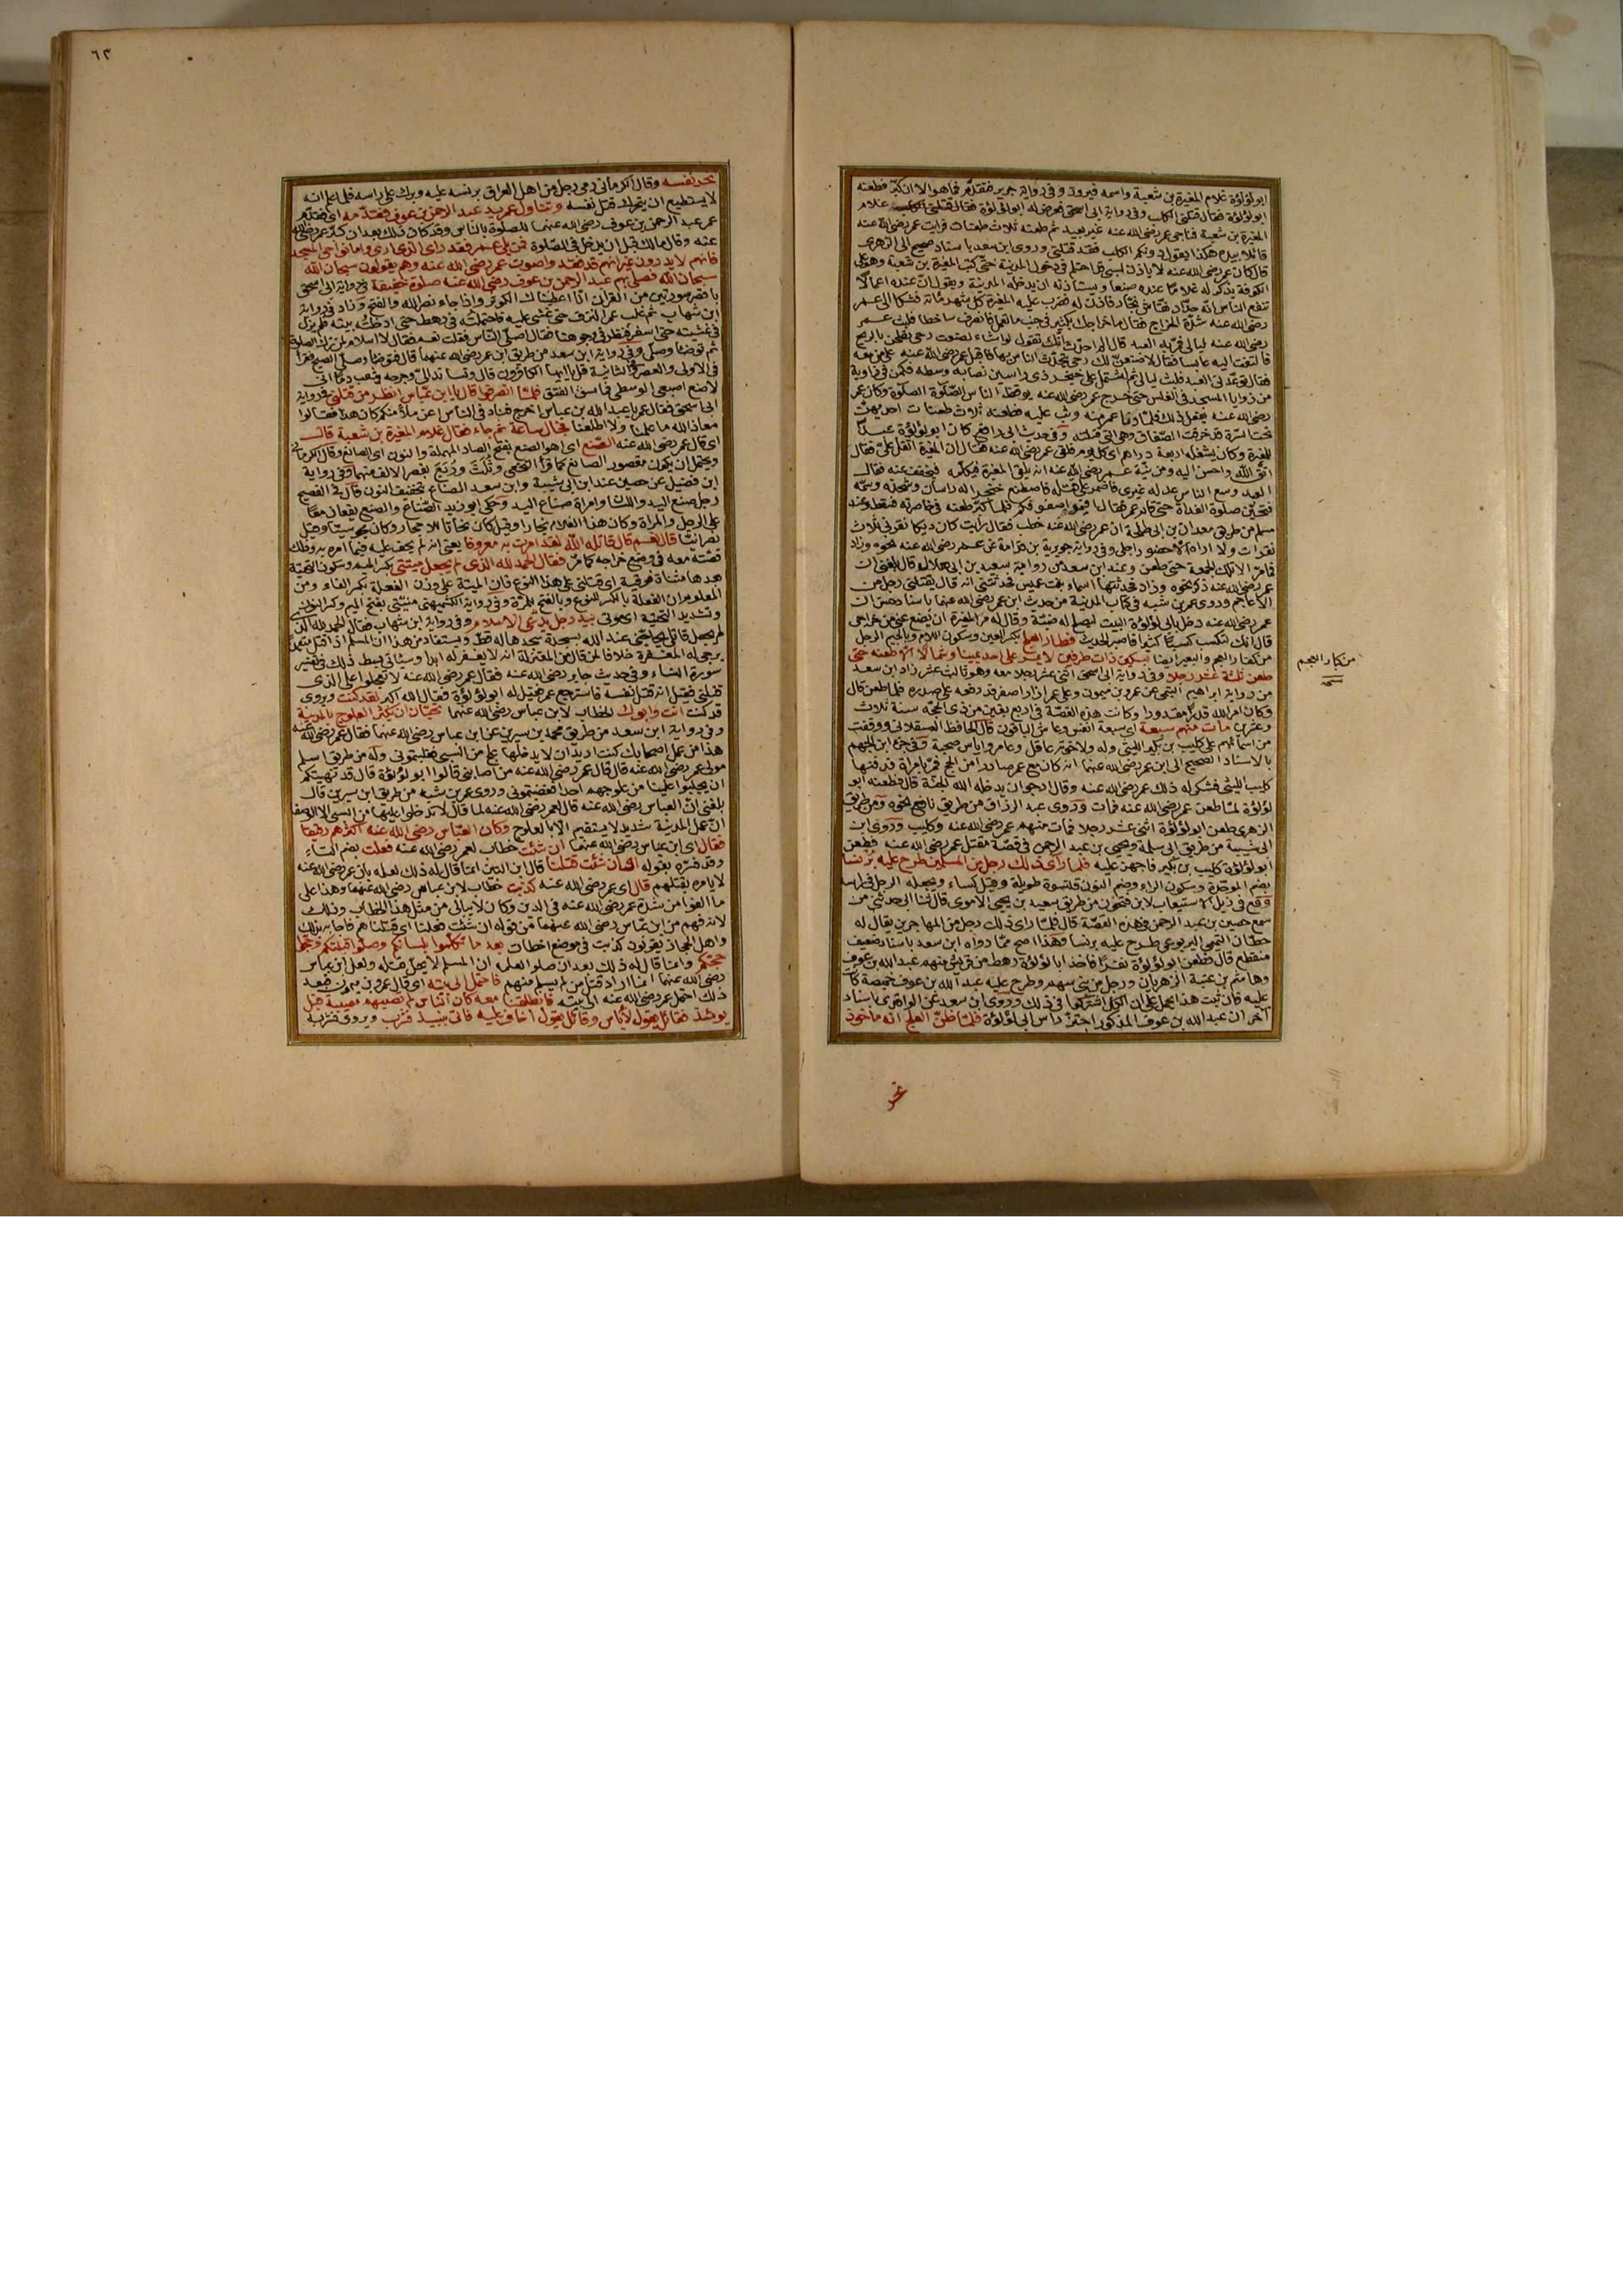 ابو لؤلؤة غلام المغيرة بن شعبة واسمه فيروز وفى رواية جرير فتقدم فما هو الا ان كبر فطعنه
ابو لؤلؤة فقال قتلنى الكلب وفى رواية ابى اسحق فعرض له ابو لؤلؤة غلام
المغيرة بن شعبة فناجى عمر رضى الله عنه غير بعيد ثم طعنه ثلاث طعنات فرايت عمر رضى الله عنه
قائلا بيده هكذا يقول دونكم الكلب فقد قتلنى وروى ابن سعد باسناد صحيح الى الزهرى
قال كان عمر رضى الله عنه لا ياذن لسبى قد احتلم فى دخول المدينة حتى كتب المغيرة بن شعبة وهو على
الكوفة يذكر له غلاما عنده صنعا ويستأذنه ان يدخله المدينة ويقول ان عنده اعمالا
تنفع الناس انه حداد نقاش نجار فاذن له فضرب عليه المغيرة كل شهر مائة فشكا الى عمر
رضى الله عنه شدة الخراج فقال ما خراجك بكثير فى جنب ما تعمل فانصرف ساخطا فلبث عمر
رضى الله عنه ليالى فمر به العبد فقال الم احدث انك تقول لو اشاء لصنعت رحى تطحن بالريح
فالتفت اليه عابسا فقال لاصنعن لك رحى يتحدث الناس بها فاقبل عمر رضى الله عنه على من معه
فقال توعدنى العبد فلبث ليالى ثم اشتمل على خنجر ذى راسين نصابه وسطه فكمن فى زاوية
من زوايا المسجد فى الغلس حتى خرج عمر رضى الله عنه يوقظ الناس الصلوة الصلوة وكان عمر
رضى الله عنه يفعل ذلك فلما دنا عمر منه وثب عليه فطعنه ثلاث طعنات احديهن
تحت السرة قد خرقت الصفاق وهى التى قتلته وفى حديث ابى رافع كان ابو لؤلؤة عبدا
للمغيرة وكان يستغله اربعة دراهم اى كل يوم فلقى عمر رضى الله عنه فقال ان المغيرة اثقل على فقال
اتق الله واحسن اليه ومن نية عمر رضى الله عنه ان يلقى المغيرة فيكلمه فيخفف عنه فقال
العبد وسع الناس عدله غيرى فاضمر على قتله فاصطنع خنجرا له راسان وشحذه وسمه
فتحين صلوة الغداة حتى قام عمر فقال اقيموا صفوفكم فلما كبر طعنه فى خاصرته فسقط وعند
مسلم من طريق معدان بن ابى طلحة ان عمر رضى الله عنه خطب فقال رايت كان ديكا نقرنى ثلاث
نقرات ولا اراه الا حضور اجلى وفى رواية جويرية بن قدامة عن عمر رضى الله عنه نحوه وزاد
فما مر الا تلك الجمعة حتى طعن وعند ابن سعد من رواية سعيد بن ابى هلال قال بلغنى ان
عمر رضى الله عنه ذكر نحوه وزاد فحدثتها اسماء بنت عميس فحدثتنى انه قال يقتلنى رجل من
الاعاجم وروى عمر بن شبه فى كتاب المدينة من حديث ابن عمر رضى الله عنهما باسناد حسن ان
عمر رضى الله عنه دخل بابى لؤلؤة البيت ليصلح له ضبة وقال له مر المغيرة ان يضع عنى من خراجى
قال انك لتكسب كسبا كثيرا فاصبر الحديث فطار العلج بكسر العين وسكون اللام وبالجيم الرجل
من كفار العجم والبعير ايضا بسكين ذات طرفين لا يمر على احد يمينا وشمالا الا طعنه حتى
طعن ثلثة عشر رجلا وفى رواية ابى اسحق اثنى عشر رجلا معه وهو ثالث عشر زاد ابن سعد
من رواية ابراهيم التيمى عن عمرو بن ميمون وعلى عمر ازار اصفر قد رفعه على صدره فلما طعن قال
وكان امر الله قدرا مقدورا وكانت هذه القصة فى اربع بقين من ذى الحجة سنة ثلاث
وعشرين مات منهم سبعة اى سبعة انفس وعاش الباقون قال الحافظ العسقلانى ووقفت
من اسمائهم على كليب بن بكير الليثى وله ولاخوته عاقل وعامر واياس صحبة وفى جزء ابى الجهم
بالاسناد الصحيح الى ابن عمر رضى الله عنهما انه كان مع عمر صادرا من الحج فمر بامراة فدفنها
كليب الليثى فشكر له ذلك عمر رضى الله عنه وقال ارجو ان يدخله الله الجنة قال فطعنه ابو
لؤلؤة لما طعن عمر رضى الله عنه فمات وروى عبد الرزاق من طريق نافع نحوه ومن طريق
الزهرى طعن ابو لؤلؤة اثنى عشر رجلا فمات منهم عمر رضى الله عنه وكليب وروى ابن
ابى شيبة من طريق ابى سلمة ويحيى بن عبد الرحمن فى قصة مقتل عمر رضى الله عنه فطعن
ابو لؤلؤة كليب بن بكير فاجهز عليه فلما راى ذلك رجل من المسلمين طرح عليه برنسا
بضم الموحدة وسكون الراء وضم النون قلنسوة طويلة وقيل كساء ويجعله الرجل فى راسه
وقع فى ذيل الاستيعاب لابن فتحون من طريق سعيد بن يحيى الاموى قال ثنا ابى حدثنى من
سمع حصين بن عبد الرحمن فى هذه القصة قال فلما راى ذلك رجل من المهاجرين يقال له
حطان التميمى اليربوعى طرح عليه برنسا وهذا اصح مما رواه ابن سعد باسناد ضعيف
منقطع قال فطعن ابو لؤلؤة نفرا فاخذ ابا لؤلؤة رهط من قريش منهم عبد الله بن عوف
وهاشم بن عتبة الزهريان ورجل من بنى سهم وطرح عليه عبد الله بن عوف خميصة كانت
عليه فان ثبت هذا يحمل على ان الكل اشتركوا فى ذلك وروى ابن سعد عن الواقدى باسناد
آخر ان عبد الله بن عوف المذكور احتز راس ابى لؤلؤة فلما ظن العلج انه ماخوذ
من كبار العجم
نحر
٦٣
نحر نفسه وقال الكرمانى رمى رجل من اهل العراق برنسه عليه وبرك على راسه فلما علم انه
لا يستطيع ان يتحرك قتل نفسه وتناول عمر يد عبد الرحمن بن عوف فقدمه اى فقدم
عمر عبد الرحمن بن عوف رضى الله عنهما للصلوة بالناس وقد كان ذلك بعد ان كبر عمر رضى الله
عنه وقال مالك قبل ان يدخل فى الصلوة فمن يلى عمر فقد راى الذى ارى واما نواحى المسجد
فانهم لا يدرون غير انهم قد فقدوا صوت عمر رضى الله عنه وهم يقولون سبحان الله
سبحان الله فصلى بهم عبد الرحمن بن عوف رضى الله عنه صلوة خفيفة فى رواية ابى اسحق
باقصر سورتين من القرآن انا اعطيناك الكوثر واذا جاء نصر الله والفتح وزاد فى رواية
ابن شهاب ثم غلب عمر النزف حتى غشى عليه فاحتملته فى رهط حتى ادخلته بيته فلم يزل
فى غشيته حتى اسفر فنظر فى وجوهنا فقال اصلى الناس فقلت نعم فقال لا اسلام لمن ترك الصلوة
ثم توضأ وصلى وفى رواية ابن سعد من طريق ابن عمر رضى الله عنهما قال فتوضأ وصلى الصبح فقرا
فى الاولى والعصر وفى الثانية قل يا ايها الكافرون قال وتساند الى وجرحه يثعب دما انى
لاضع اصبعى الوسطى فما تسد الفتق فلما انصرفوا قال يا ابن عباس انظر من قتلنى وفى رواية
ابى اسحق فقال عمر يا عبد الله بن عباس اخرج فناد فى الناس اعن ملأ منكم كان هذا فقالوا
معاذ الله ما علمنا ولا اطلعنا فجال ساعة ثم جاء فقال غلام المغيرة بن شعبة قال
اى قال عمر رضى الله عنه الصنع اى اهو الصنع بفتح الصاد المهملة والنون اى الصانع وقال الكرمانى
ويحتمل ان يكون مقصور الصانع كما قرأ النخعى وثلث وربع بقصر الالف منهما وفى رواية
ابن فضيل عن حصين عند ابن ابى شيبة وابن سعد الصناع بتخفيف النون قال فى الفصيح
رجل صنع اليد واللسان وامراة صناع اليد وحكى ابو زيد الصناع والصنع يقعان معا
على الرجل والمراة وكان هذا الغلام نجارا وقيل كان نحاتا للاحجار وكان مجوسيا وقيل
نصرانيا قال نعم قال قاتله الله لقد امرت به معروفا يعنى انه لم يحف عليه فيما امره به وذلك
قصته معه فى وضع خراجه كما مر فقال الحمد لله الذى لم يجعل ميتتى بكسر الميم وسكون التحتية
بعدها مثناة فوقية اى قتلتى على هذا النوع فان الميتة على وزن الفعلة بكسر الفاء ومن
المعلوم ان الفعلة بالكسر للنوع وبالفتح للمرة وفى رواية الكشميهنى منيتى بفتح الميم وكسر النون
وتشديد التحتية اى موتى بيد رجل يدعى الاسلام وفى رواية ابن شهاب فقال الحمد لله الذى
لم يجعل قاتلى يحاجنى عند الله بسجدة سجدها له قط ويستفاد من هذا ان المسلم اذا قتل متعمدا
يرجى له المغفرة خلافا لمن قال من المعتزلة انه لا يغفر له ابدا وسيأتى بسط ذلك فى تفسير
سورة النساء وفى حديث جابر رضى الله عنه فقال عمر رضى الله عنه لا تعجلوا على الذى
قتلنى فقيل انه قتل نفسه فاسترجع عمر فقيل له ابو لؤلؤة فقال الله اكبر لقد كنت ويروى
قد كنت انت وابوك الخطاب لابن عباس رضى الله عنهما تحبان ان تكثر العلوج بالمدينة
وفى رواية ابن سعد من طريق محمد بن سيرين عن ابن عباس رضى الله عنهما فقال عمر رضى الله عنه
هذا من عمل اصحابك كنت اريد ان لا يدخلها علج من السبى فغلبتمونى وله من طريق اسلم
مولى عمر رضى الله عنه قال قال عمر رضى الله عنه من اصابنى قالوا ابو لؤلؤة قال قد نهيتكم
ان تجلبوا علينا من علوجهم احدا فعصيتمونى وروى عمر بن شبه من طريق ابن سيرين قال
بلغنى ان العباس رضى الله عنه قال لعمر رضى الله عنه لما قال لا تدخلوا علينا من السبى الا الوصفا
ان عمل المدينة شديد لا يستقيم الا بالعلوج وكان العباس رضى الله عنه اكثرهم رقيقا
فقال اى ابن عباس رضى الله عنهما ان شئت خطاب لعمر رضى الله عنه فعلت بضم التاء
وقد فسره بقوله اى ان شئت قتلنا قال ابن التين انما قال له ذلك لعلمه بان عمر رضى الله عنه
لا يامره بقتلهم قال اى عمر رضى الله عنه كذبت خطاب لابن عباس رضى الله عنهما وهذا على
ما الفوا من شدة عمر رضى الله عنه فى الدين وكان لا يبالى من مثل هذا الخطاب وذلك
لانه فهم من ابن عباس رضى الله عنهما من قوله ان شئت فعلنا اى قتلناهم فاجابه بذلك
واهل الحجاز يقولون كذبت فى موضع اخطات بعد ما تكلموا بلسانكم وصلوا قبلتكم وحجوا
حجكم وانما قال له ذلك بعد ان صلوا لعلمه ان المسلم لا يحل قتله ولعل ابن عباس
رضى الله عنهما انما اراد قتل من لم يسلم منهم فاحتمل الى بيته اى قال عمرو بن ميمون فبعد
ذلك احتمل عمر رضى الله عنه الى بيته فانطلقنا معه كان الناس لم تصبهم مصيبة قبل
يومئذ فقائل يقول لا باس وقائل يقول اخاف عليه فاتى بنبيذ فشرب ويروى فشربه